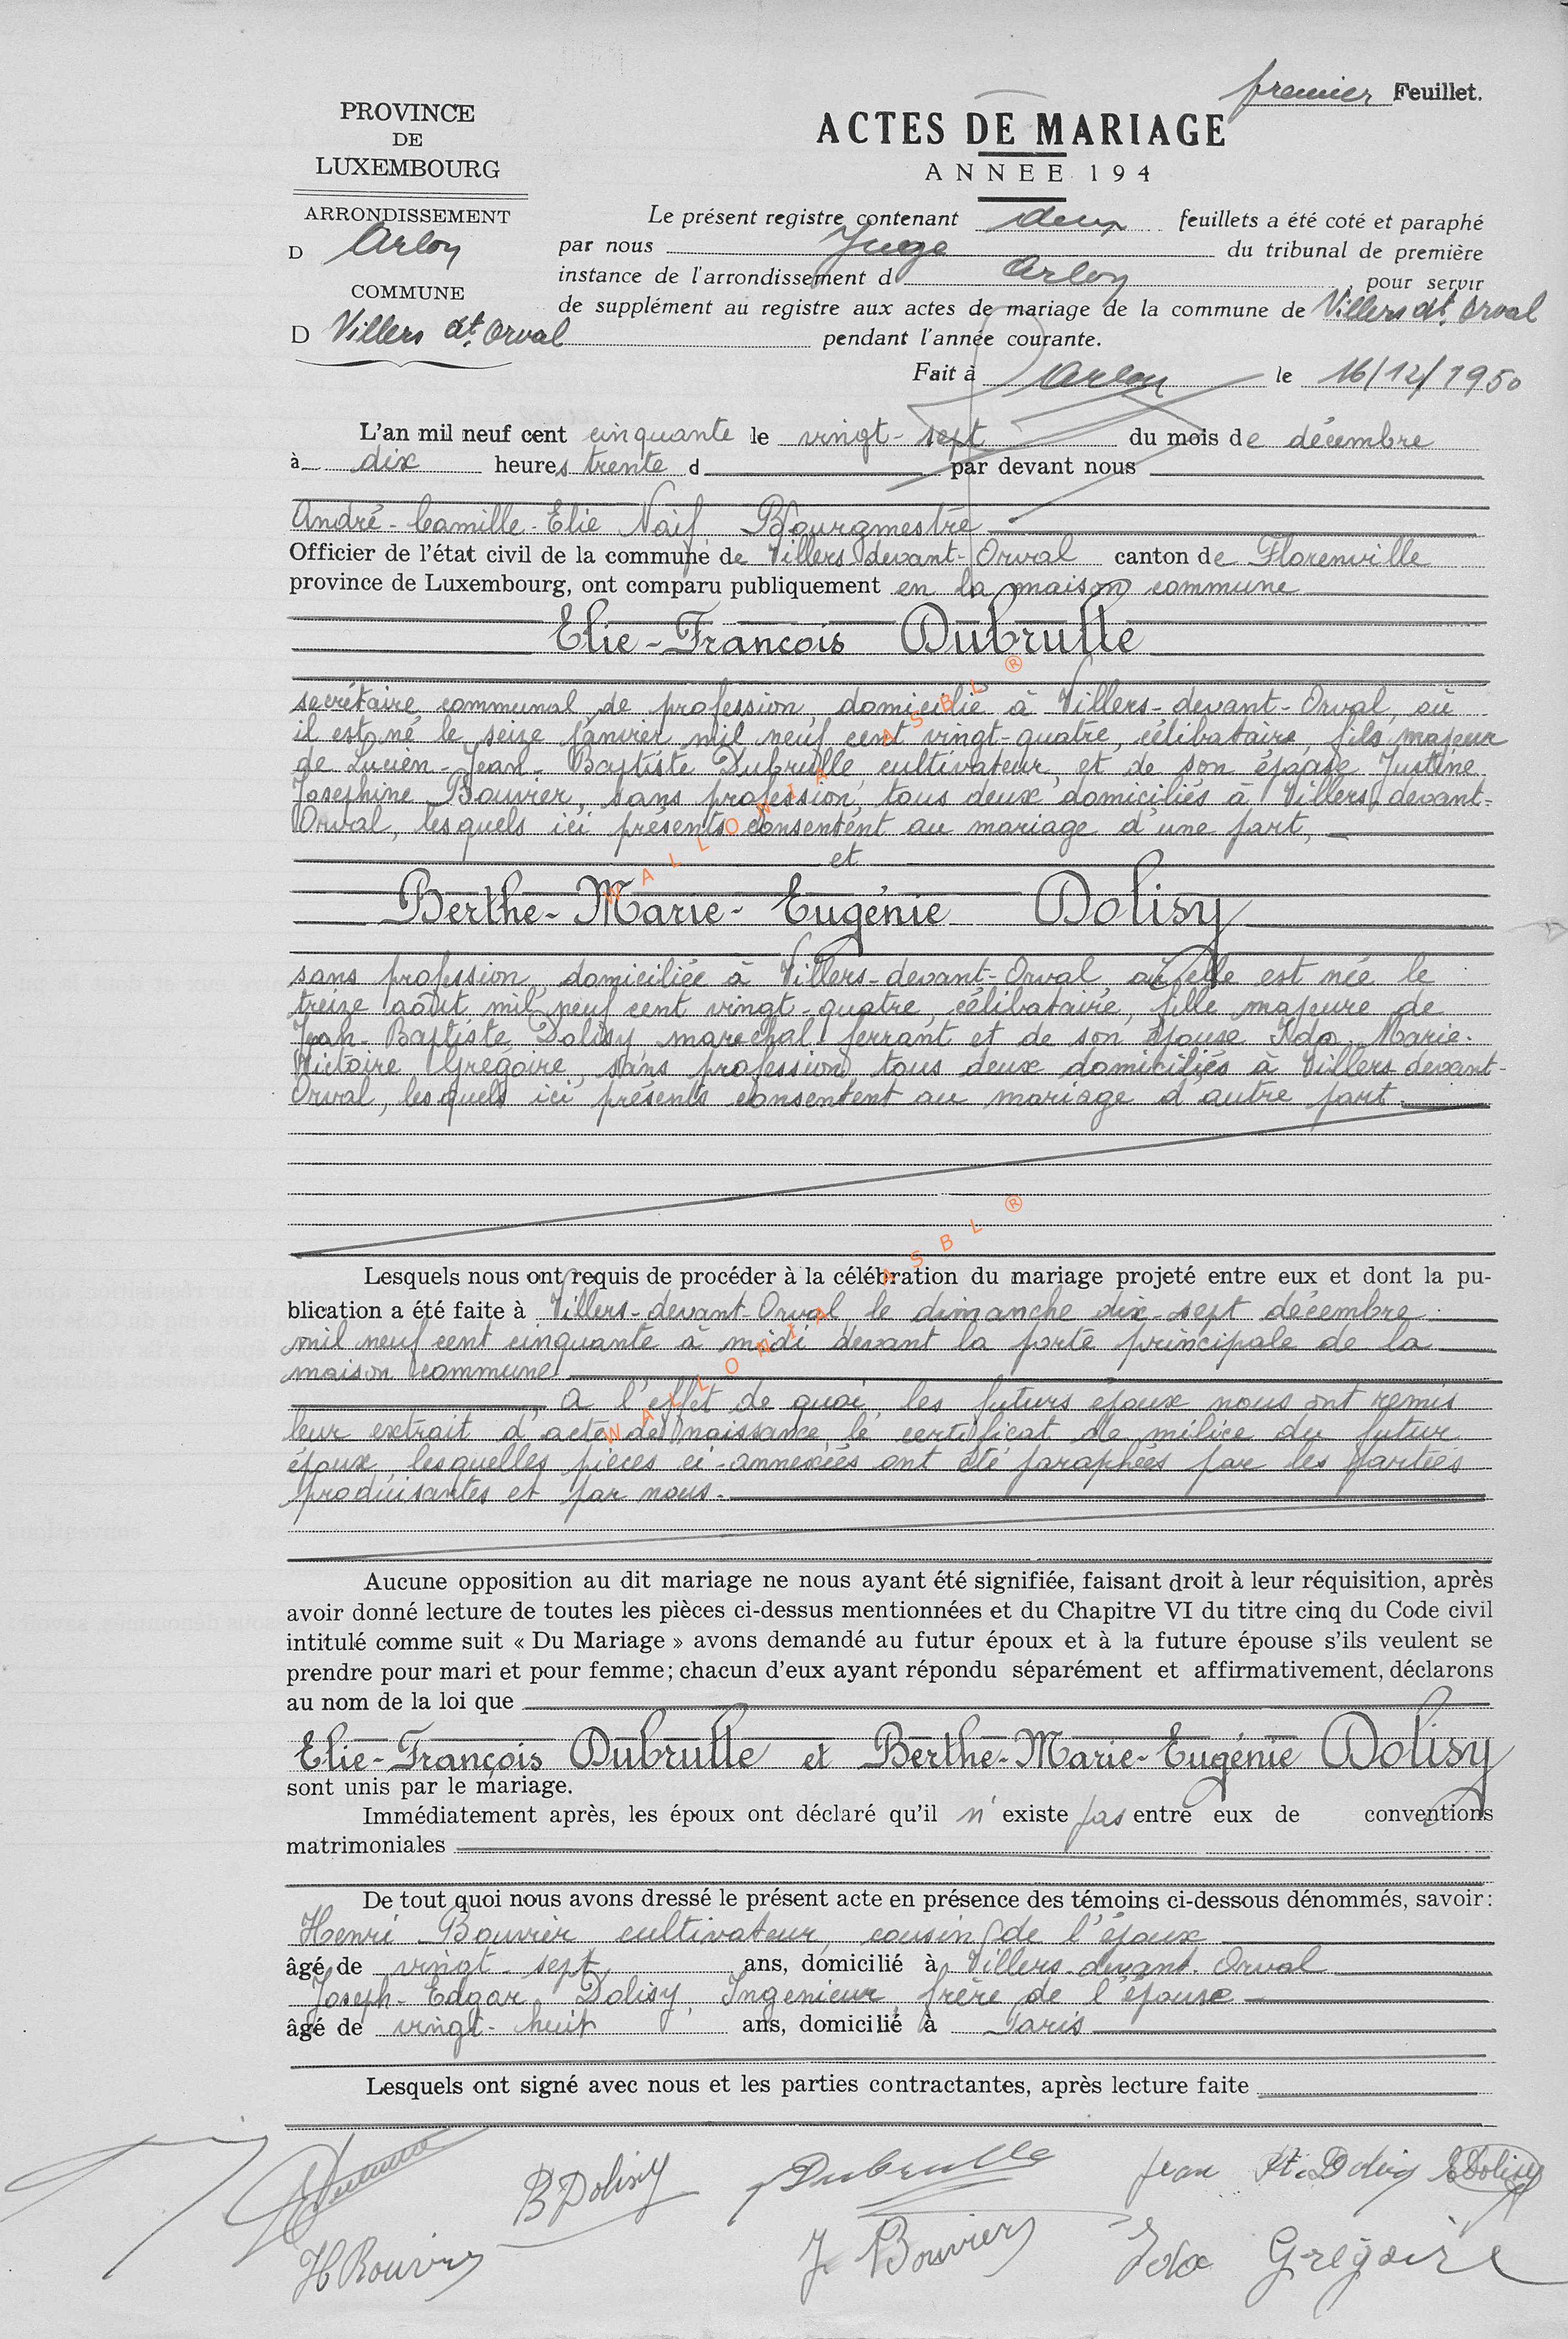 premier Feuillet.
PROVINCE
DE
LUXEMBOURG
ACTES DE MARIAGE
ANNEE 194
ARRONDISSEMENT
D Arlon
COMMUNE
D Villers dt. Orval
Le présent registre contenant deux feuillets a été coté et paraphé
par nous Juge du tribunal de première
instance de l'arrondissement d Arlon pour servir
de supplément au registre aux actes de mariage de la commune de Villers dt. Orval
pendant l'année courante.
Fait à Arlon le 16/12/1950
L'an mil neuf cent cinquante le vingt-sept du mois de décembre
à dix heures trente d par devant nous
André-Camille-Elie Naif, Bourgmestre
Officier de l'état civil de la commune de Villers-devant-Orval canton de Florenville
province de Luxembourg, ont comparu publiquement en la maison commune
Elie-François Dubrulle
secrétaire communal de profession, domicilié à Villers-devant-Orval, où
il est né le seize janvier mil neuf cent vingt-quatre, célibataire, fils majeur
de Lucien-Jean-Baptiste Dubrulle, cultivateur, et de son épouse Justine
Josephine Bouvier, sans profession, tous deux domiciliés à Villers-devant-
Orval, lesquels ici présents consentent au mariage d'une part,
et
Berthe-Marie-Eugénie Dolisy
sans profession, domiciliée à Villers-devant-Orval, où elle est née le
treize août mil neuf cent vingt-quatre, célibataire, fille majeure de
Jean-Baptiste Dolisy, marechal-ferrant et de son épouse Ida-Marie-
Victoire Grégoire, sans profession, tous deux domiciliés à Villers-devant-
Orval, lesquels ici présents consentent au mariage d'autre part.
Lesquels nous ont requis de procéder à la célébration du mariage projeté entre eux et dont la pu-
blication a été faite à Villers-devant-Orval, le dimanche dix-sept décembre
mil neuf cent cinquante à midi devant la porte principale de la
maison commune
A l'effet de quoi, les futurs époux nous ont remis
leur extrait d'acte de naissance, le certificat de milice du futur
époux, lesquelles pièces ci-annexées ont été paraphées par les parties
produisantes et par nous.
Aucune opposition au dit mariage ne nous ayant été signifiée, faisant droit à leur réquisition, après
avoir donné lecture de toutes les pièces ci-dessus mentionnées et du Chapitre VI du titre cinq du Code civil
intitulé comme suit « Du Mariage » avons demandé au futur époux et à la future épouse s'ils veulent se
prendre pour mari et pour femme; chacun d'eux ayant répondu séparément et affirmativement, déclarons
au nom de la loi que
Elie-François Dubrulle et Berthe-Marie-Eugénie Dolisy
sont unis par le mariage.
Immédiatement après, les époux ont déclaré qu'il n'existe pas entre eux de conventions
matrimoniales
De tout quoi nous avons dressé le présent acte en présence des témoins ci-dessous dénommés, savoir:
Henri Bouvier cultivateur, cousin de l'époux
âgé de vingt-sept ans, domicilié à Villers-devant-Orval
Joseph-Edgar Dolisy, Ingenieur, frère de l'épouse
âgé de vingt-huit ans, domicilié à Paris
Lesquels ont signé avec nous et les parties contractantes, après lecture faite
B Dolisy Dubrulle Jean Bte Dolisy E Dolisy
H Bouvier J Bouvier Ida Grégoire
WALLONIA ASBL ®
WALLONIA ASBL ®